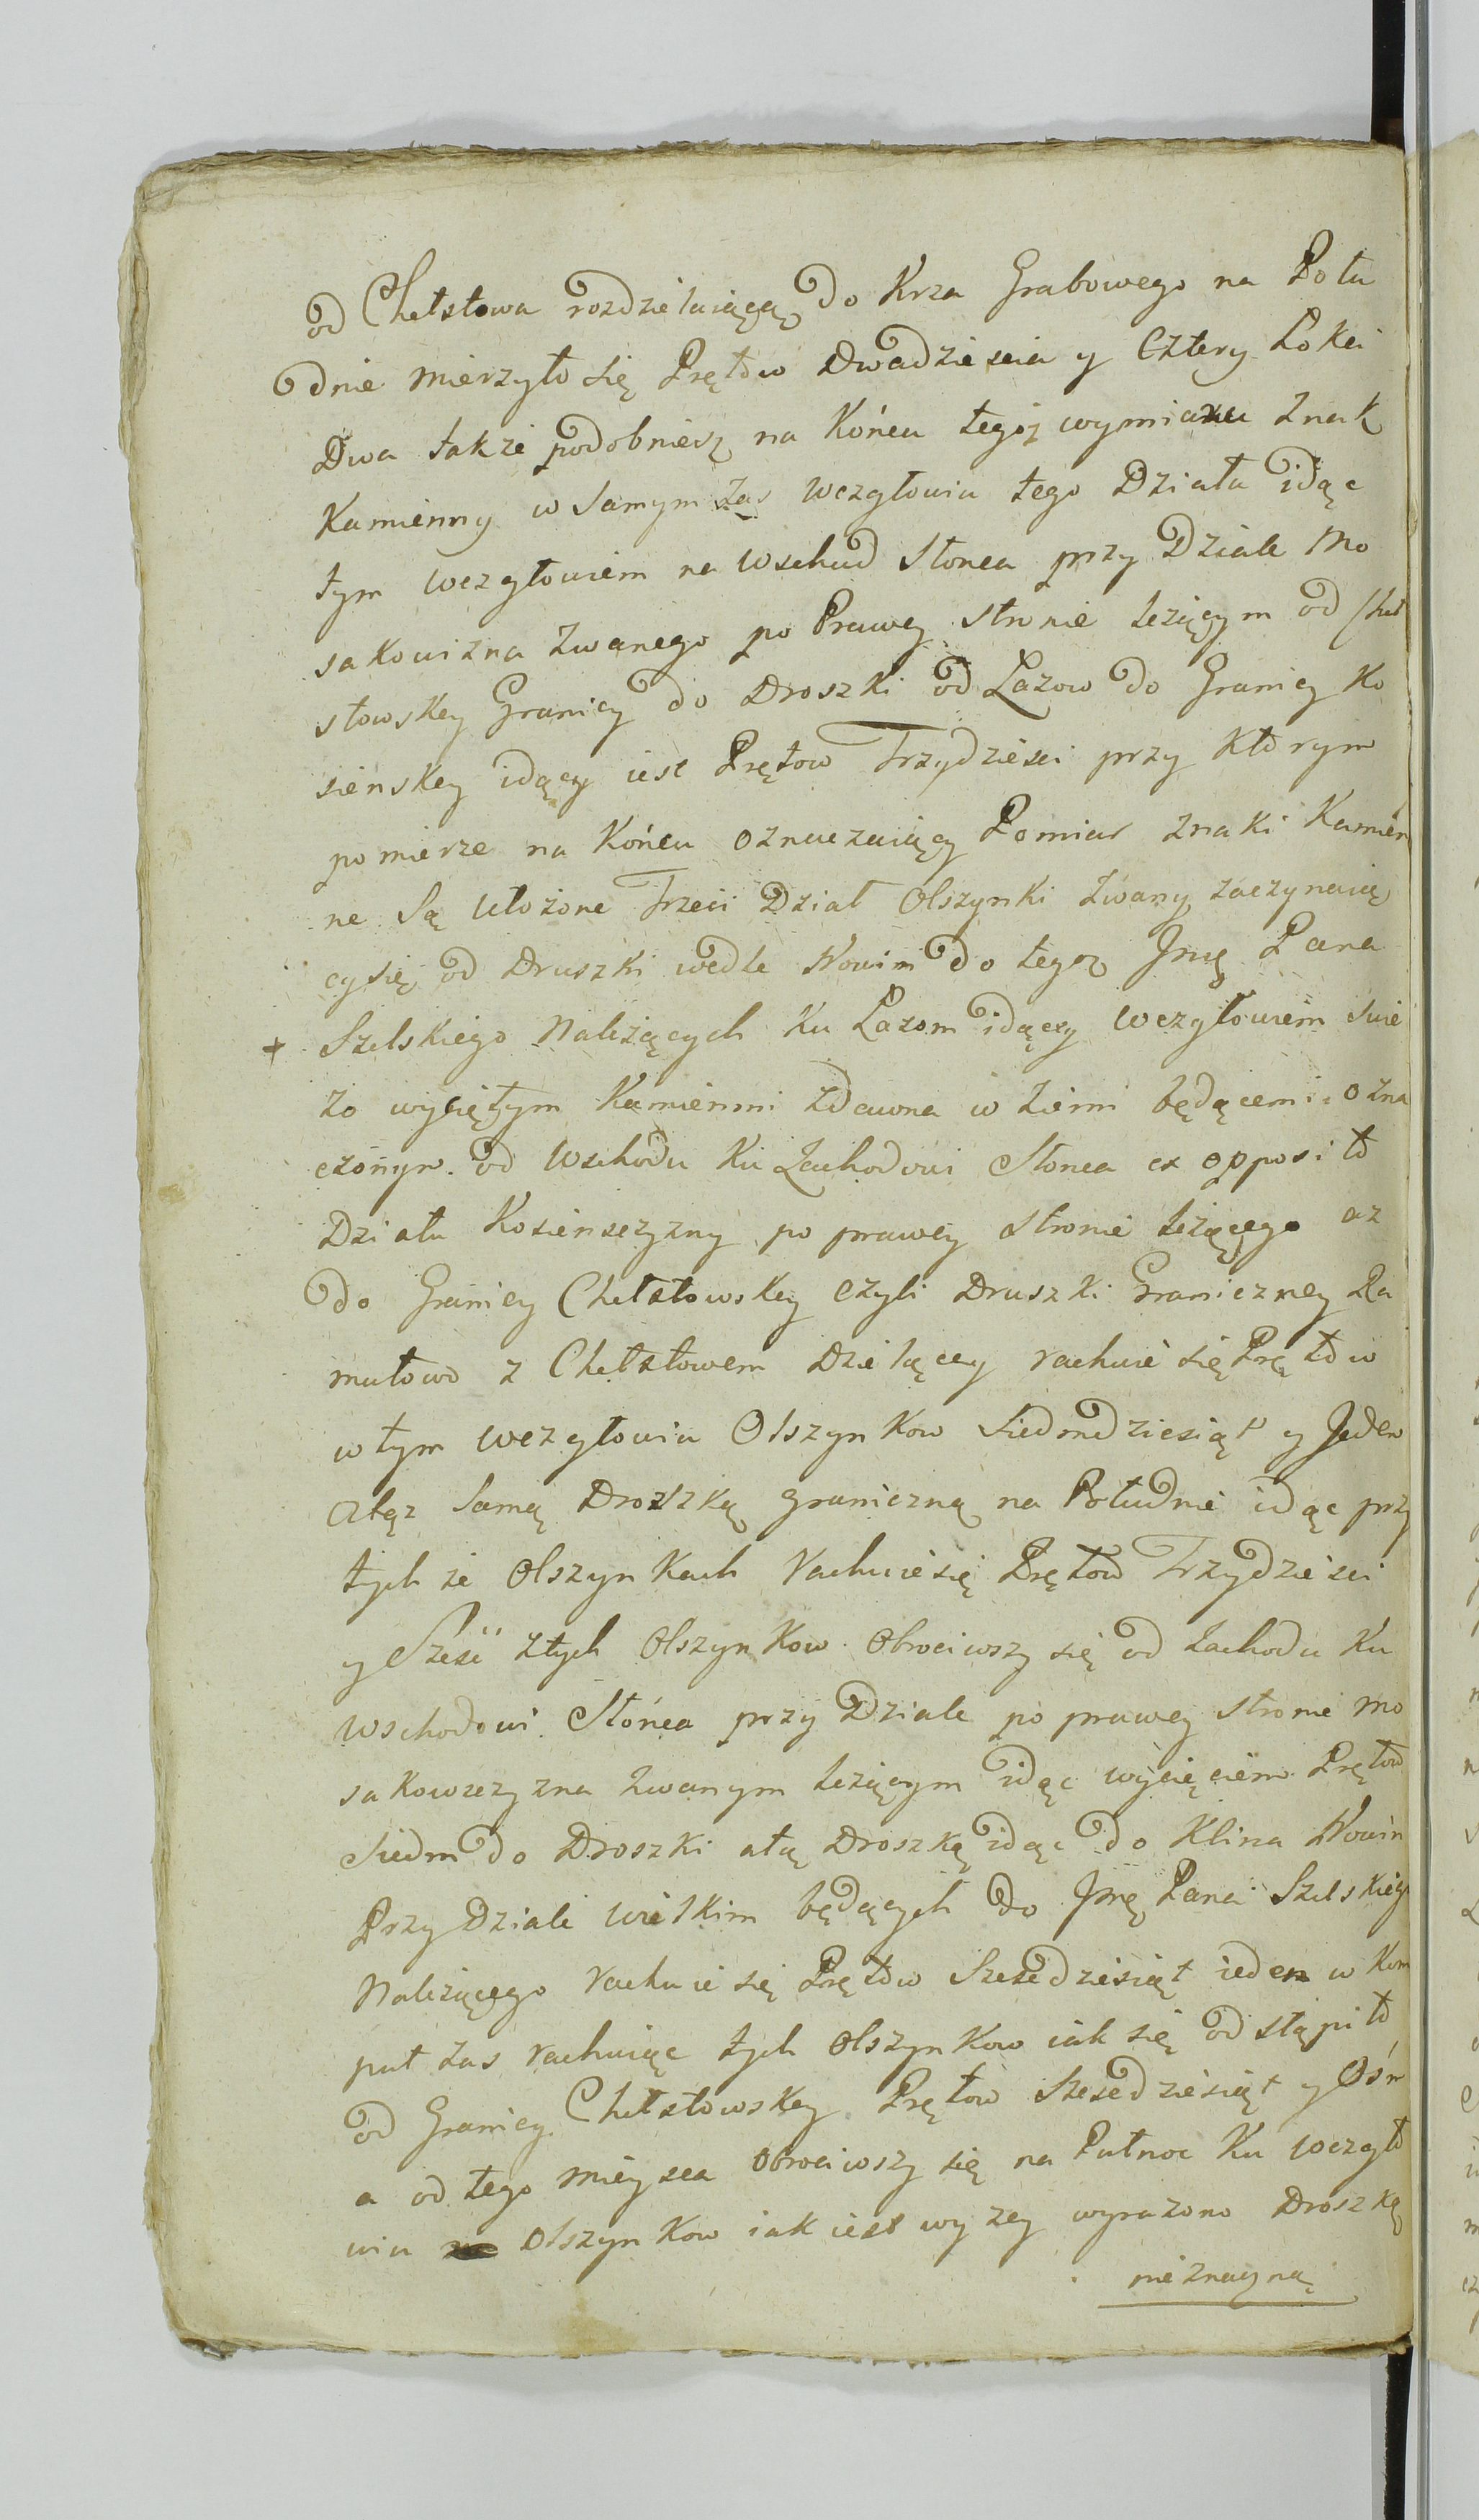 od Chełstowa rozdzielaiącą do Krza Grabowego na Połu
dnie mierzyło się Prętow Dwadziescia y Cztery Łokci
Dwa także podobniesz na Końcu tegoż wymiaru Znak
Kamienny w Samym Zas Wezgłowiu tego Działu idąc
tym wezgłowiem na Wschud Słonca przy Dziale Mo
sakowizna Zwanego po Prawey stronie leżącym od Cheł
stowskey Granicy do Droszki od Lazow do Granicy Ko
sienskey idący iest Prętow Trzydziesci przy Ktorym
pomierze na Końcu oznaczaiący Pomiar Znaki Kamien
ne Są Ułożone Trzeci Dział Olszynki Zwany zaczynaią
cy się od Druszki wedle Nowin do tegoz Jmę Pana
+ Szelskiego Należących Ku Lazom idący Wezgłowiem swie
żo wyciętym Kamienmi Zdawna w Ziemi będącemi ozna
czonym od Wschodu Ku Zachodowi Słonca ex opposito
Działu Kosienszczyzny po prawey stronie leżącego az
do Granicy Chełstowskey czyli Druszki Graniczney Ra
mułowo z Chełstowem Dzielącey rachuie się Prętow
w tym wezgłowiu Olszynkow Siedmdziesiąt y Jeden
Atąz Samą Droszką graniczną na Południe idąc przy
tych ze Olszynkach Rachuie się Prętow Trzydziesci
y Szesć Ztych Olszynkow Obrociwszy się od Zachodu Ku
Wschodowi Słońca przy Dziale po prawey stronie Mo
sakowszczyzna Zwanym leżącym idąc wycięciem Prętow
Siedm do Droszki atą Droszką idąc do Klina Nowin
Przy Dziale Wielkim będących do Jmę Pana Szelskieg
Należącego Rachuie się Prętow Szesedziesiąt ieden w Kom
put zas rachuiąc tych Olszynkow iak się odstąpiło
od Granicy Chełstowskey Prętow Szesedziesiąt y Ośm
a od tego mieysca Obrociwszy się na Pułnoc Ku Wezgło
wiu Olszynkow iak iest wyzey wyrazono Droszką
nieznaczną